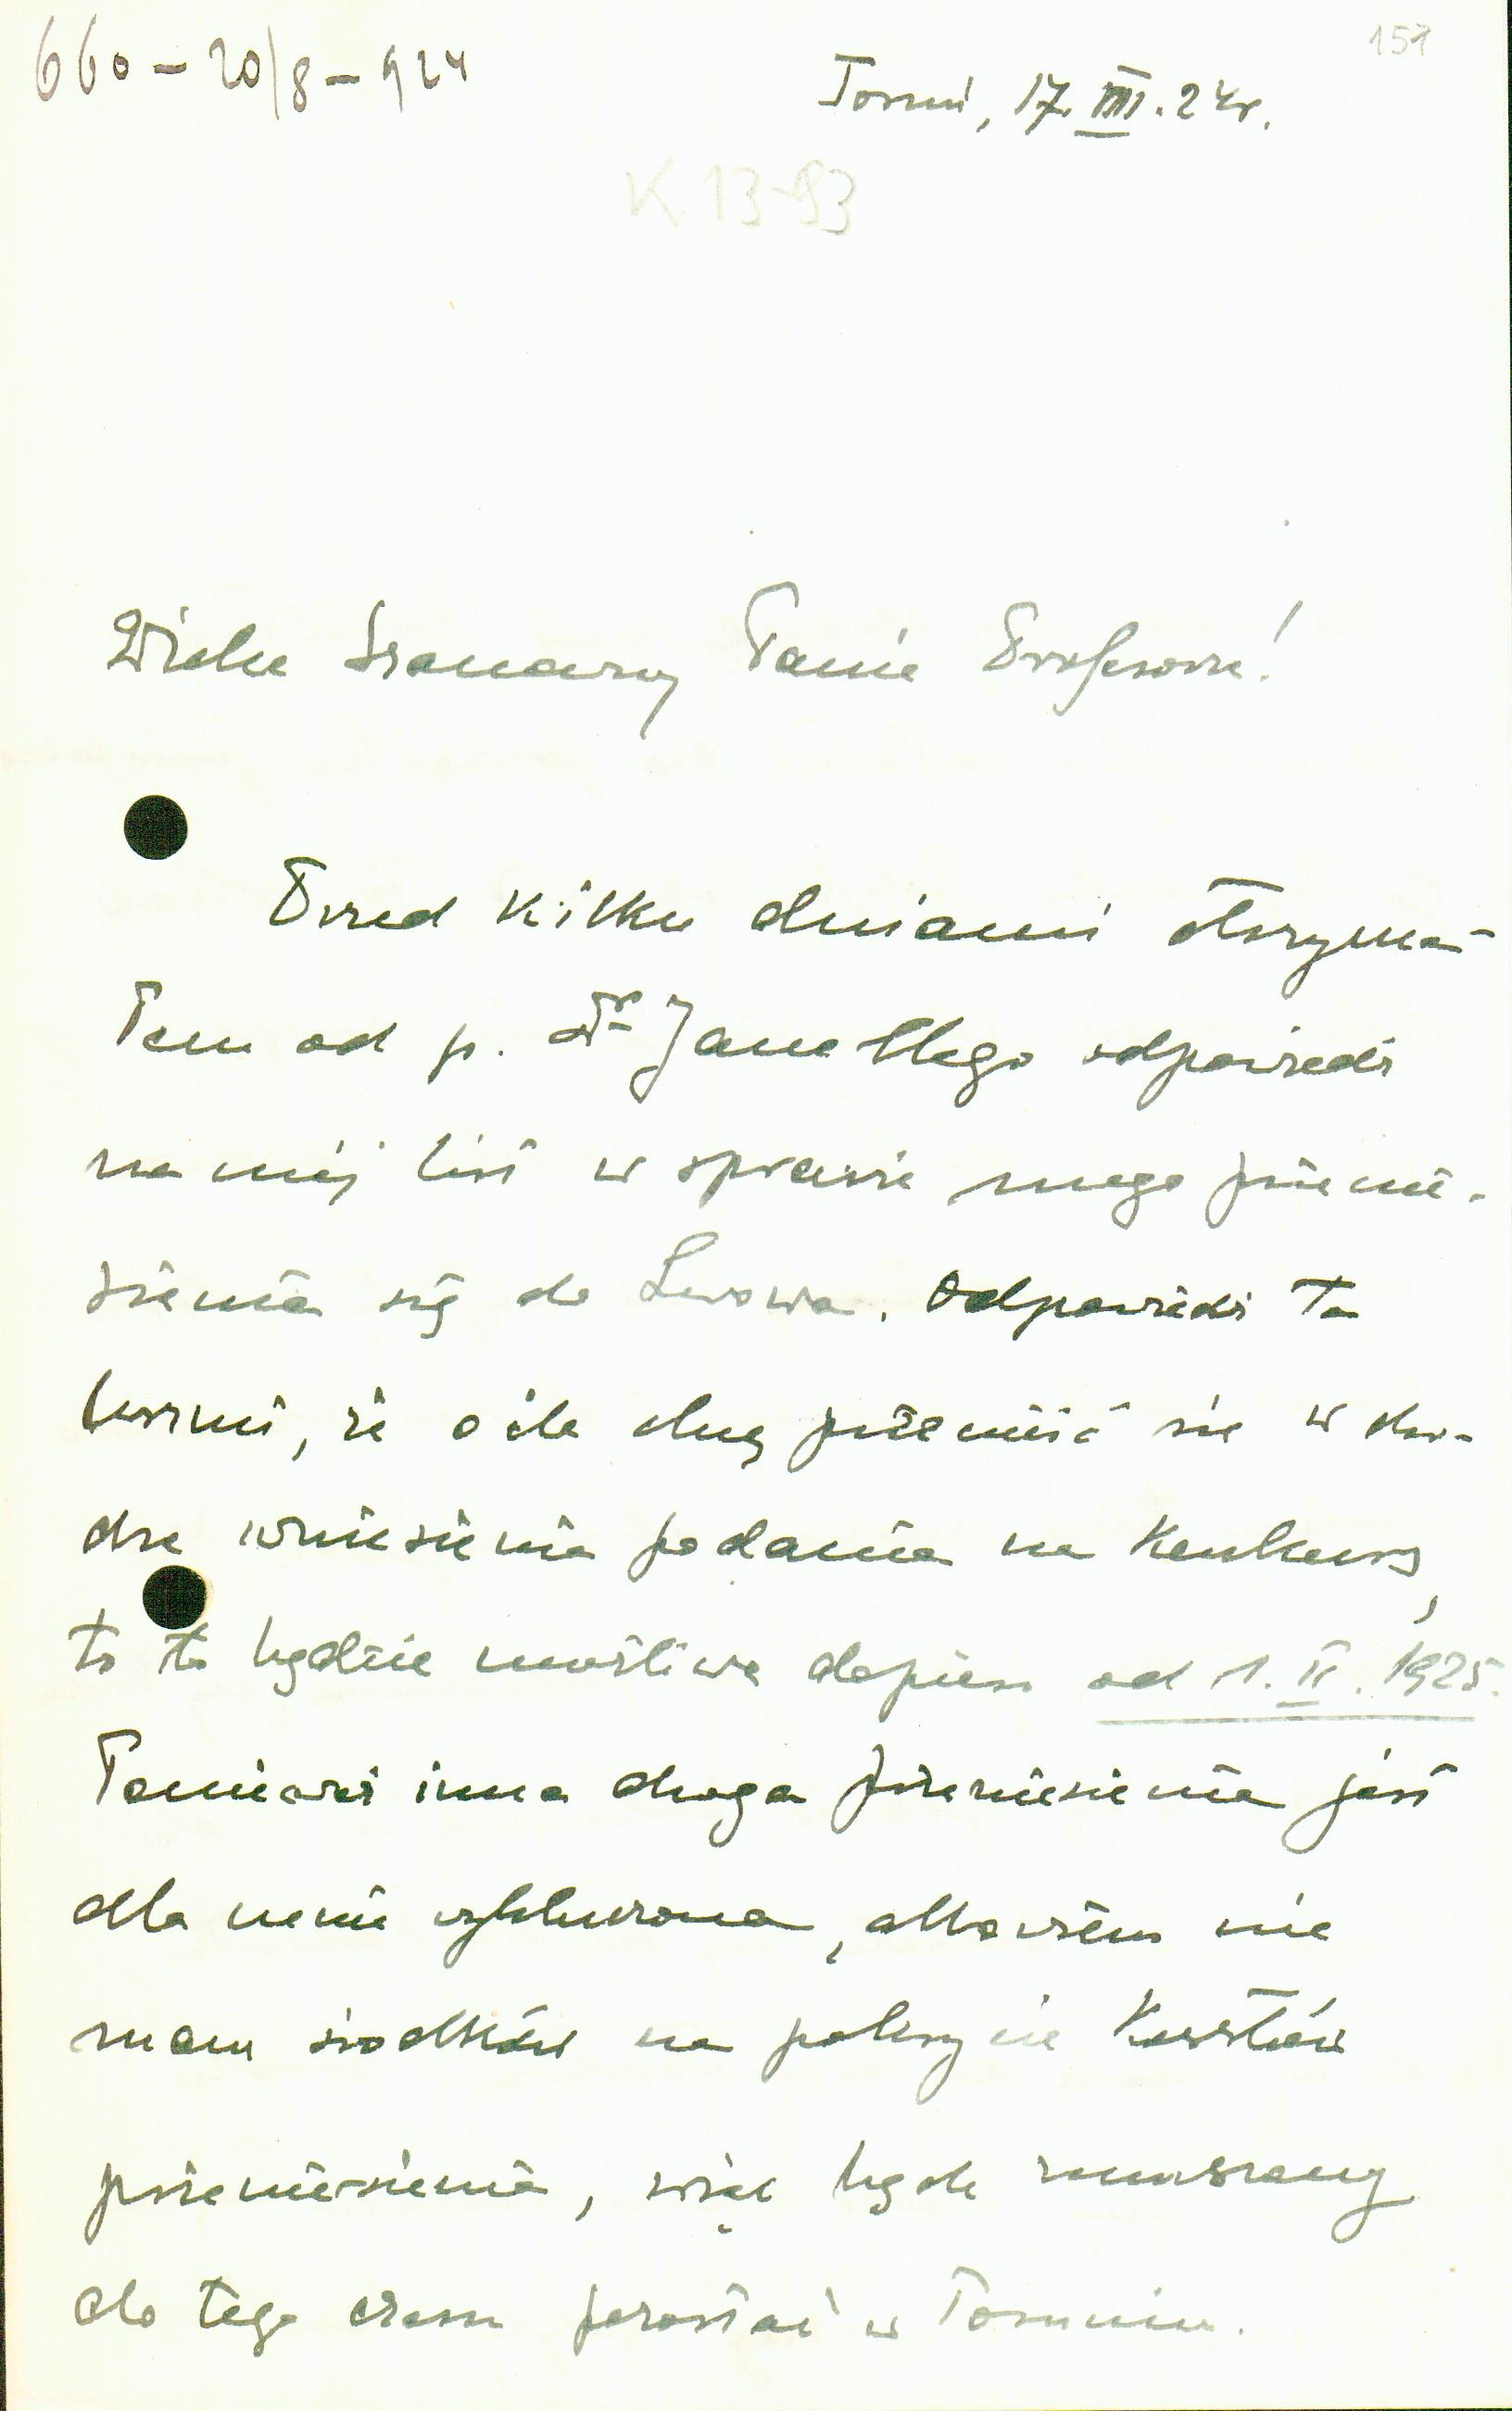 660 – 20/8 – 924
151
Toruń, 17.VIII.24r.
K. 13-93
Wielce Szanowny Panie Profesorze!
Przed kilku dniami otrzyma-
łem od p. Dr Janellego odpowiedź
na mój list w sprawie mego przenie-
sienia się do Lwowa. Odpowiedź ta
brzmi, że o ile chcę przenieść się w dro-
dze wniesienia podania na konkurs,
to to będzie możliwe dopiero od 1.II.1925.
Ponieważ inna droga przeniesienia jest
dla mnie wykluczona, albowiem nie
mam środków na pokrycie kosztów
przeniesienia, więc będę zmuszony
do tego czasu pozostać w Toruniu.